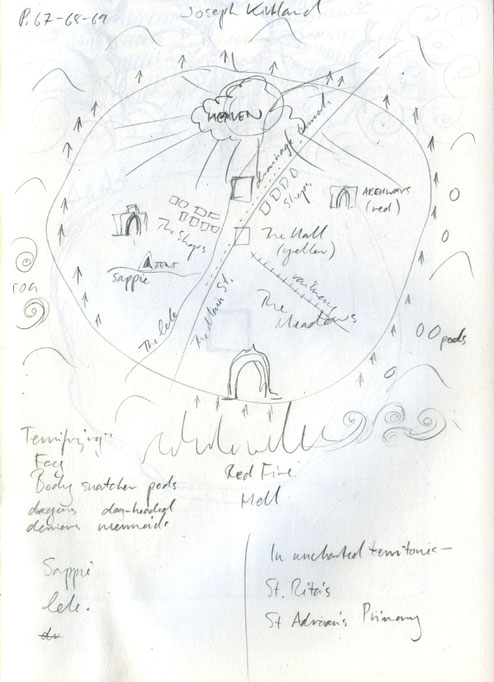 P. 67-68-69
Joseph Kirkland
HEAVEN
drainage
Shops
ARCHWAYS
(red)
The Shops
The Mall
(yellow)
TENT
Sappie
railway
The
Meadows
The lele
The Main St.
pods
Terrifying:
Fog
Body snatcher pods
dragons dog-headed
demons mermaids
Red Fire
Hell
Sappie
lele.
In uncharted territories—
St. Rita's
St Adrian's Primary